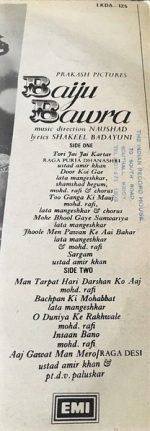 LKDA-125
PRAKASH PICTURES
Baiju
Bawra
music direction NAUSHAD
lyrics SHAKEEL BADAYUNI
SIDE ONE
Tori Jai Jai Kartar
RAGA PURIA DHANASHRI
ustad amir khan
Door Koi Gae
lata mangeshkar,
shamshad begum,
mohd. rafi & chorus
Too Ganga Ki Mauj
mohd. rafi,
lata mangeshkar & chorus
Mohe Bhool Gaye Samvariya
lata mangeshkar
Jhoole Men Pawan Ke Aai Bahar
lata mangeshkar
& mohd. rafi
Sargam
ustad amir khan
SIDE TWO
Man Tarpat Hari Darshan Ko Aaj
mohd. rafi
Bachpan Ki Mohabbat
lata mangeshkar
O Duniya Ke Rakhwale
mohd. rafi
Insaan Bano
mohd. rafi
Aaj Gawat Man Mero/RAGA DESI
ustad amir khan &
pt.d.v. paluskar
EMI
THE INDIAN RECORD HOUSE
SOUTH ROAD
SOUTHALL, MIDDX.